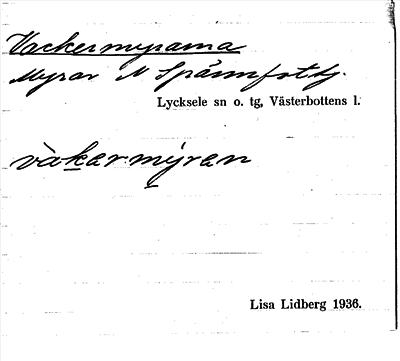 Vackermyrarna
Myrar N Spännfortj.
Lycksele sn o. tg, Västerbottens l.
vàkarmýran
Lisa Lidberg 1936.